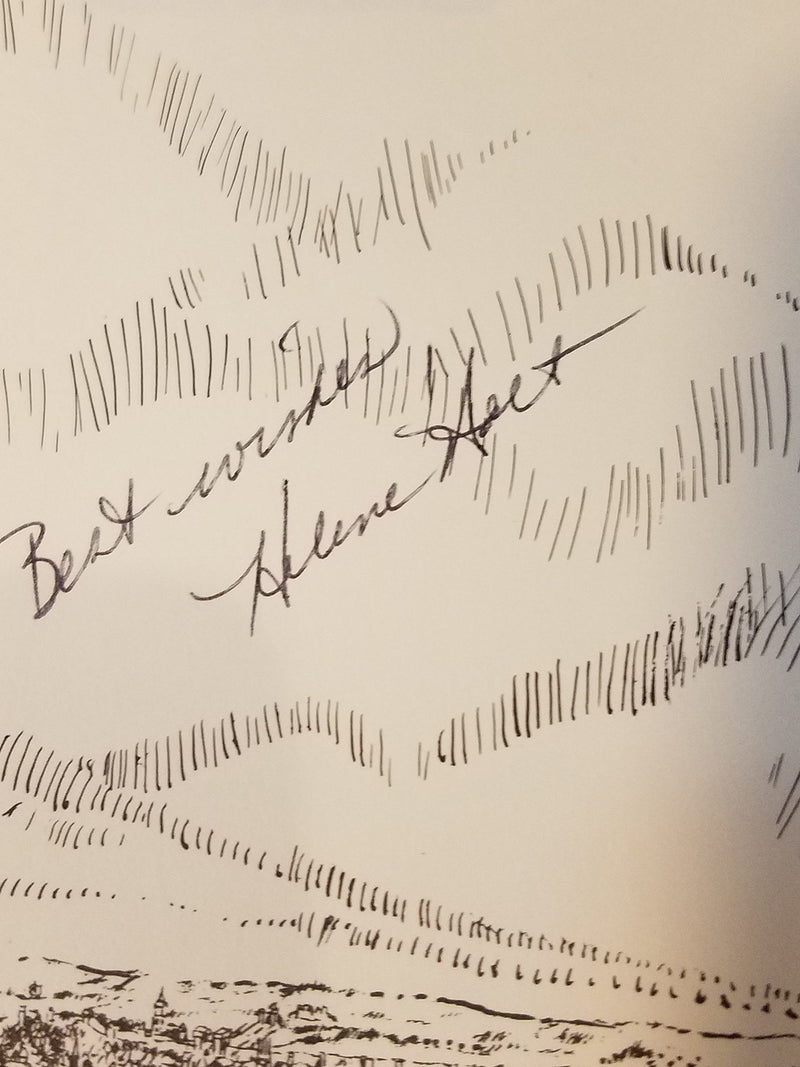 Best wishes
Helene Holt